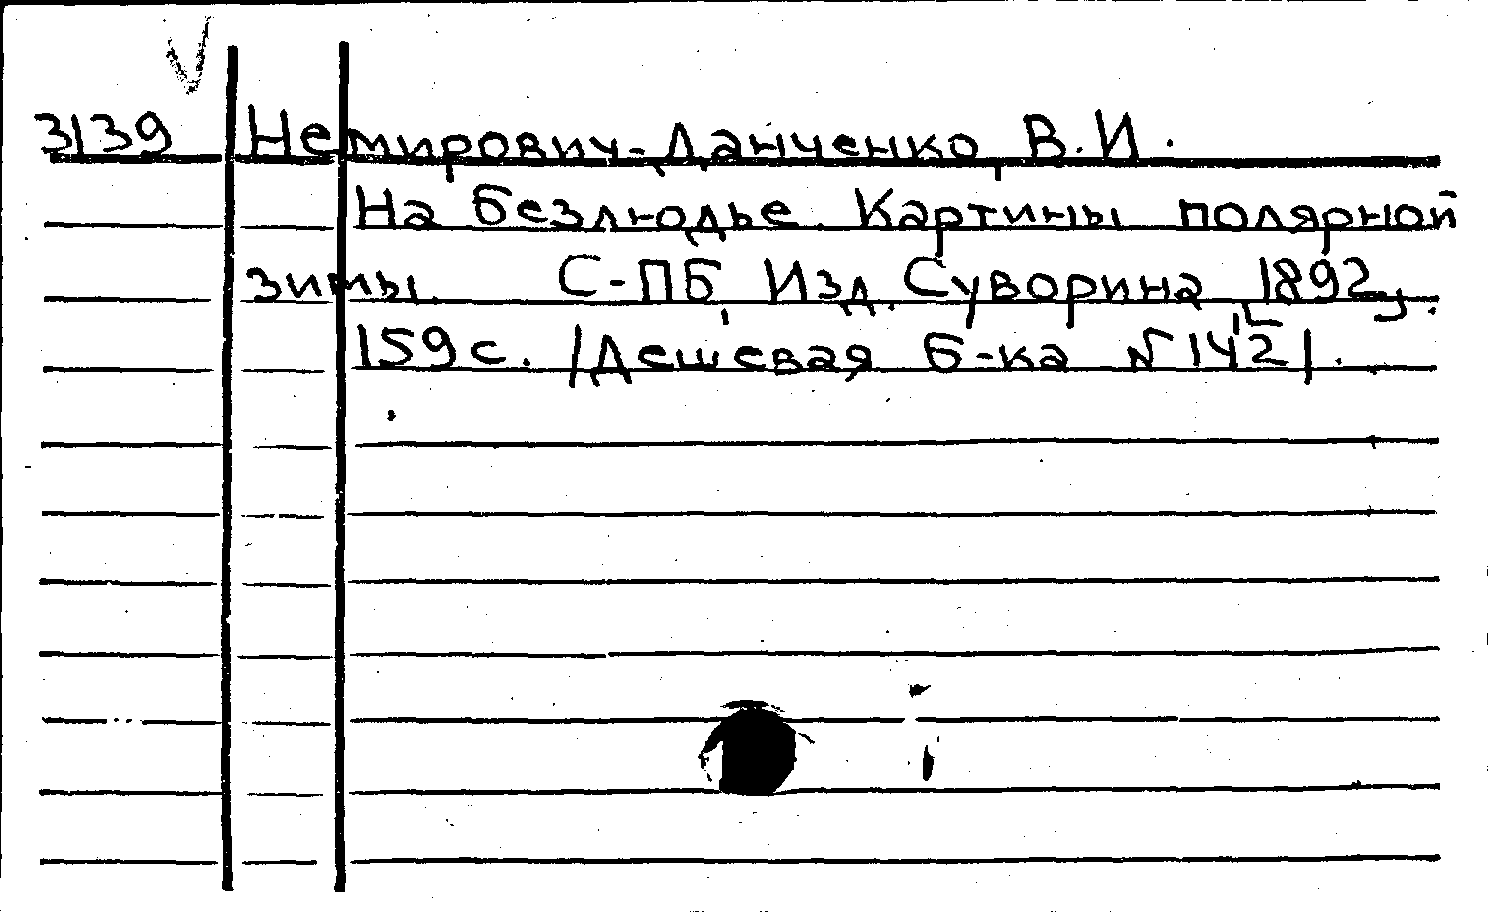 3139 Немирович-Данченко, В.И.
На безлюдье. Картины полярной
зимы. С-ПБ, Изд. Суворина, 1892,
159 с. /Дешевая б-ка № 142/.